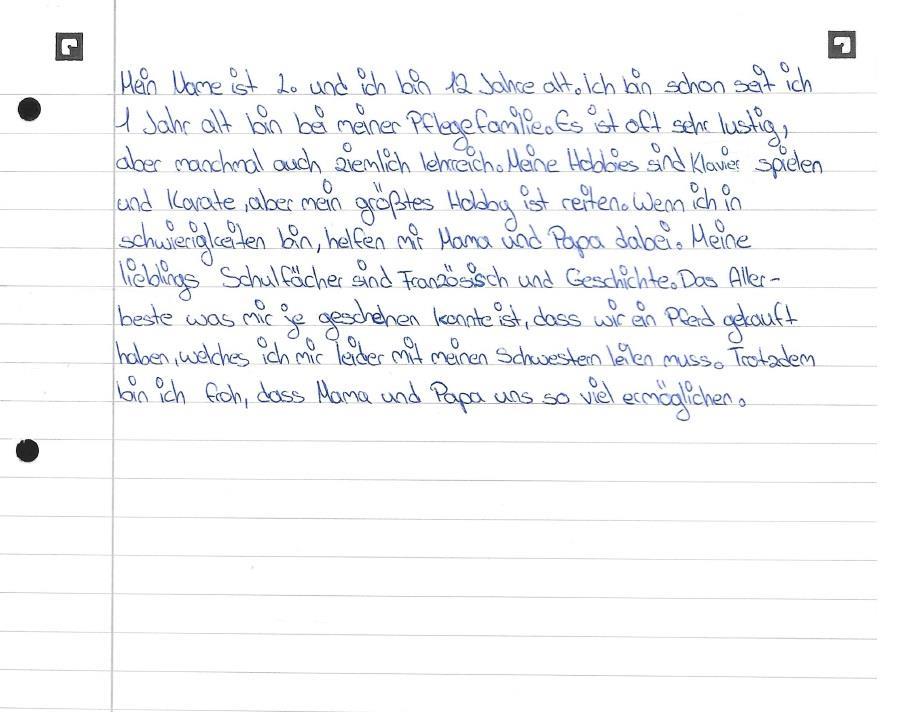 Mein Name ist L. und ich bin 12 Jahre alt. Ich bin schon seit ich
1 Jahr alt bin bei meiner Pflegefamilie. Es ist oft sehr lustig,
aber manchmal auch ziemlich lehrreich. Meine Hobbies sind Klavier spielen
und Karate, aber mein größtes Hobby ist reiten. Wenn ich in
schwierigkeiten bin, helfen mir Mama und Papa dabei. Meine
lieblings Schulfächer sind Französisch und Geschichte. Das Aller-
beste was mir je geschehen konnte ist, dass wir ein Pferd gekauft
haben, welches ich mir leider mit meinen Schwestern teilen muss. Trotzdem
bin ich froh, dass Mama und Papa uns so viel ermöglichen.